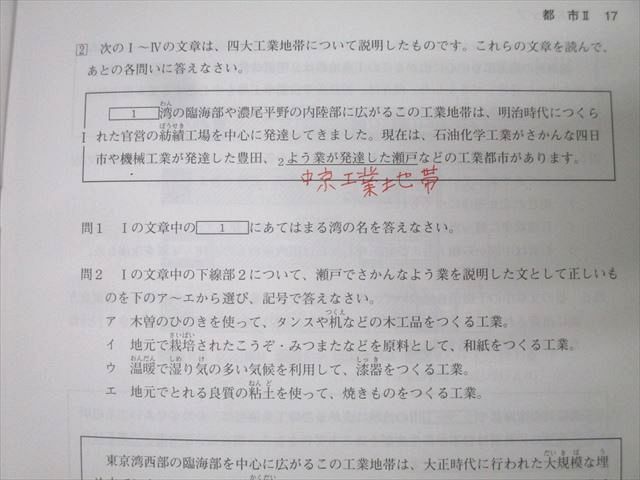 都 市Ⅱ 17
2 次のⅠ～Ⅳの文章は、四大工業地帯について説明したものです。これらの文章を読んで、
あとの各問いに答えなさい。
Ⅰ
わん
1 湾の臨海部や濃尾平野の内陸部に広がるこの工業地帯は、明治時代につくら
ぼうせき
れた官営の紡績工場を中心に発達してきました。現在は、石油化学工業がさかんな四日
市や機械工業が発達した豊田、2よう業が発達した瀬戸などの工業都市があります。
中京工業地帯
問1 Ⅰの文章中の 1 にあてはまる湾の名を答えなさい。
問2 Ⅰの文章中の下線部2について、瀬戸でさかんなよう業を説明した文として正しいも
のを下のア～エから選び、記号で答えなさい。
つくえ
ア 木曽のひのきを使って、タンスや机などの木工品をつくる工業。
さいばい
イ 地元で栽培されたこうぞ・みつまたなどを原料として、和紙をつくる工業。
おんだん しめ け しっき
ウ 温暖で湿り気の多い気候を利用して、漆器をつくる工業。
ねんど
エ 地元でとれる良質の粘土を使って、焼きものをつくる工業。
だいきぼ う
東京湾西部の臨海部を中心に広がるこの工業地帯は、大正時代に行われた大規模な埋
かくだい